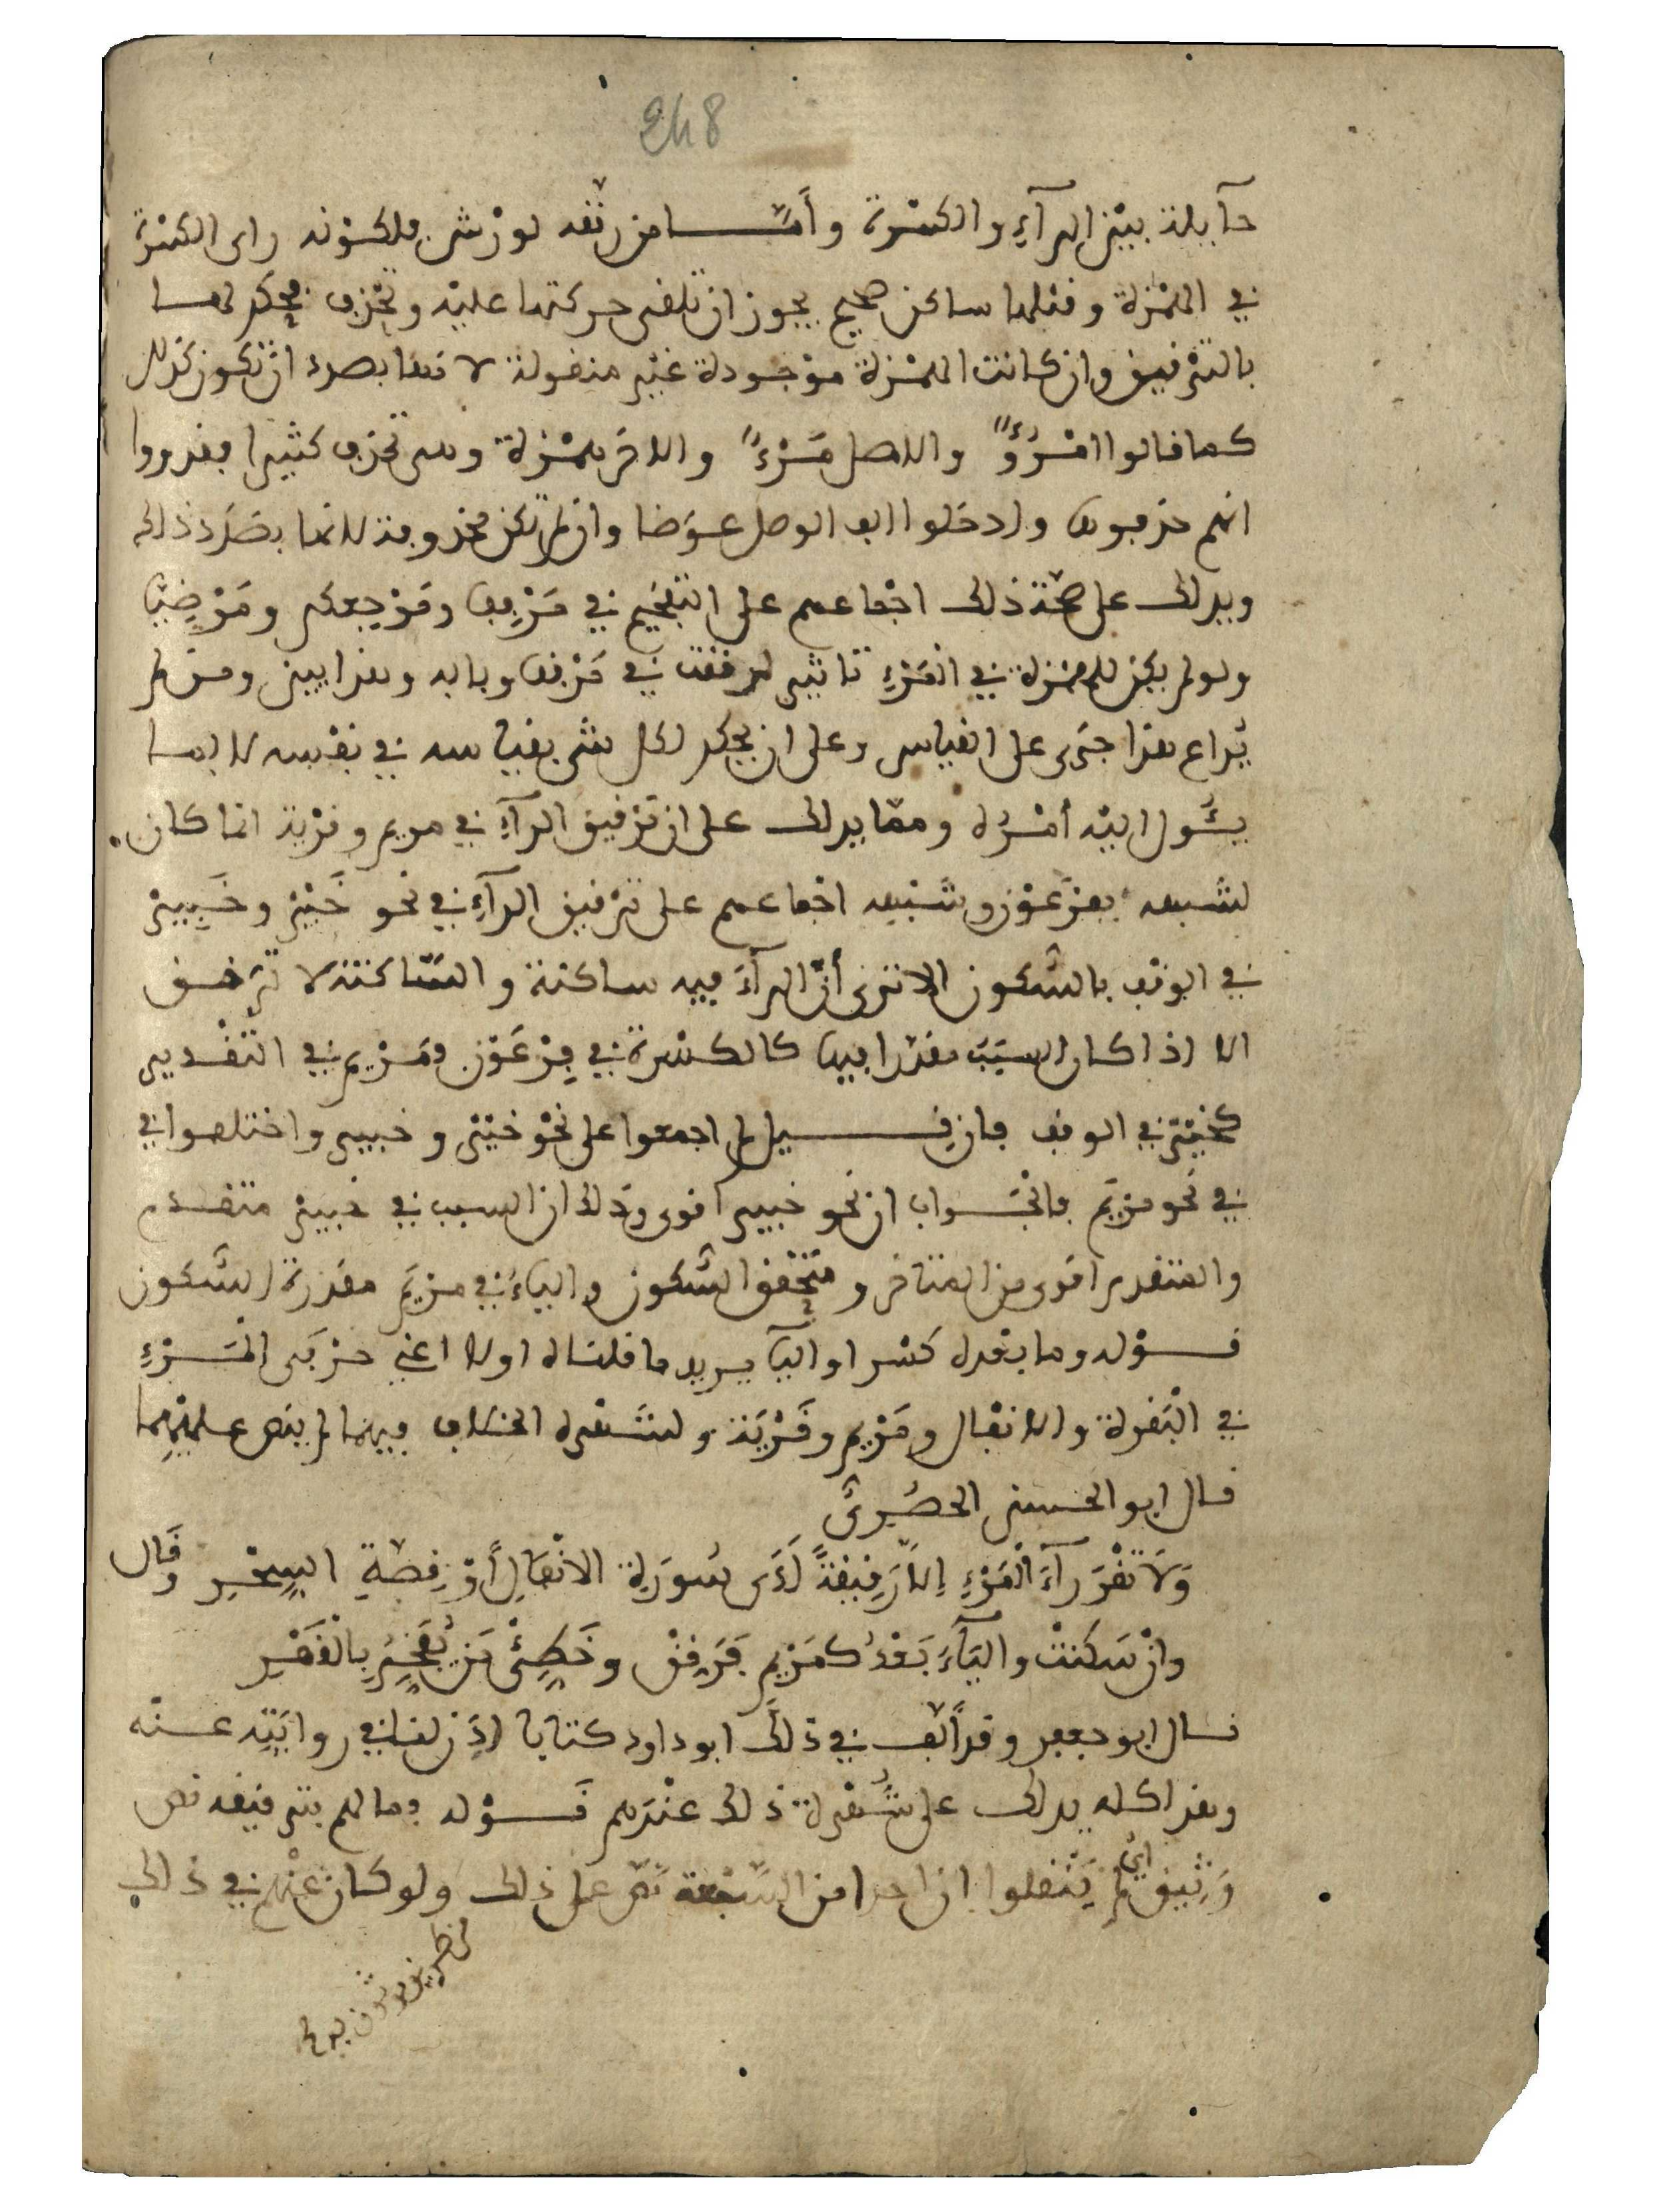 248
حآيلة بيْن الرآءِ والكسْرة وأمّا من رققه لورْش فلكوْنه راى الكسْرة
في الهمْزة وقبلها ساكن صحيح يجوز ان تلقى حركتها عليْه وتحْذف فحكم لها
بالترْقيق وان كانت الهمْزة موْجودة غيْر منقولة لانها بصدد انْ تكون كذلك
كما قالوا امْرُؤٌ والاصل مَرْءٌ والاخر همْزة وهى تحذف كثيرا فقدروا
انهم حذفوها وادخلوا الف الوصل عوَضا وان لم تكن محذوفة لانها بصدَد ذالك
ويدلك على صحّة ذلك اجْماعهم على التفخيم في مَرْفِقا ومَرْجِعكم ومَرْضِيّا
ولو لم يكن للهمْزة في المَرْءِ تاثير لرققت في مَرْفقا وبابه وهذا بيّن ومن لم
يُراع هذا جَرى على القياس وعلى ان يحكم لكل شيء بقياسه في نفْسه لا بما
يئُول اليْه أمْرُه وممّا يدلك على ان ترْقيق الرآءِ في مريم وقرْية انما كان
لشبهه بفرْعَوْن وشبْهه اجْماعهم على ترْقيق الرآءِ في نحْو خَيْر وخَبِير
في الوقْف بالسّكون الا ترى أنّ الرآءَ فيه ساكنة والسّاكنة لا تُرقق
الا اذا كان السبَبُ مقدّرا فيها كالكسْرة في فِرْعَوْن ومَرْيم في التقْدير
كخيْر في الوقف فان قيل لم اجمعوا على نحْو خيْر وخبير واختلفوا في
في نحو مرْيَم فالجَواب ان نحو خبير اقوى وذلك ان السبب في خبير متقدم
والمتقدم اقوى من المتاخر ومتحقق السّكون والياءُ في مرْيَم مقدّرة السّكون
قوْله وما بعْده كسْر او اليا يريد ما قلناه اولا اعنى حرْفى المرْءِ
في البقرة والانفال ومَرْيم وقَرْيَة ولشهْرة الخلاف فيهما لم ينص عليْهما
قال ابو الحسن الحصْرىّ
وَلَا تقْرَ رآءَ المَرْءِ إلا رَقِيقَةً لَدَى سُورَةِ الانْفَالِ أوْ قِصّةِ السِّحْرِ وقَال
وانْ سَكنتْ واليَآءُ بَعْدُ كمَرْيم فَرَقّقْ وخَطّئْ مَن يُفَخّمُ بالقَهْرِ
قال ابو جعفر وقد ألّف في ذلك ابو داود كتابا اذن لنا في روايَته عنه
وهذا كله يدلك على شُهْرة ذلك عنْدهم قوْله وما لهم بترقيقه نص
وَثيق اىْ لم يَنْقلوا ان احدا من السّبْعة نصّ على ذلك ولو كان عنْهم في ذالك
نص